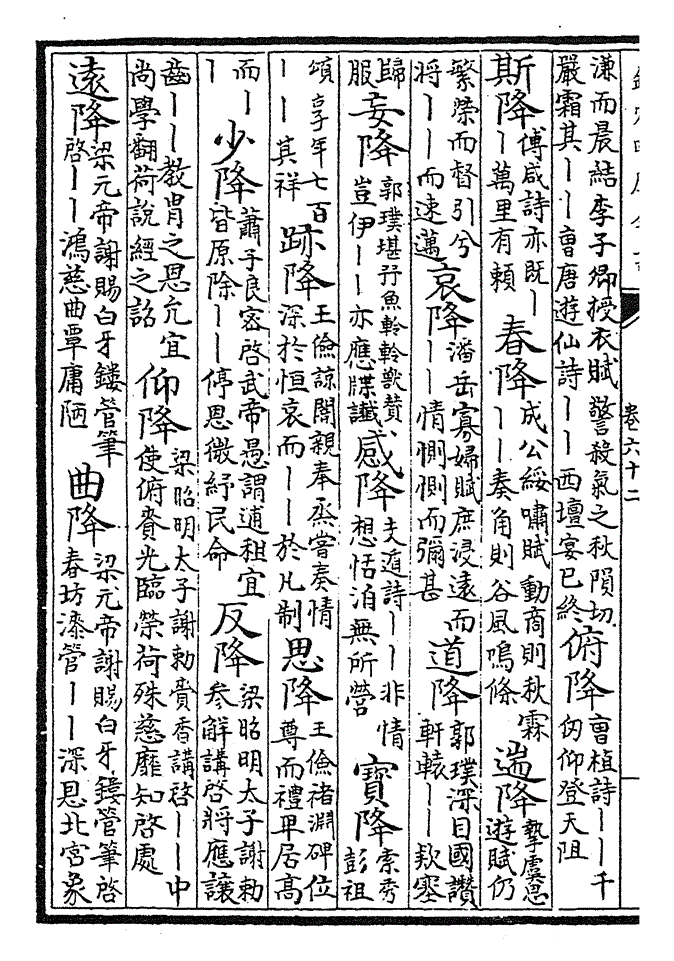 卷六十二
溓而晨結李子卿授衣賦警殺氣之秋隕切
嚴霜其丨丨曹唐遊仙詩丨丨西壇宴已終
俯降
曹植詩丨丨千
仞仰登天阻
斯降
傅咸詩亦既丨
丨萬里有賴
春降
成公綏嘯賦動商則秋霖
丨丨奏角則谷風鳴條
遄降
摯虞思
遊賦仍
繁榮而督引兮
將丨丨而速邁
哀降
潘岳寡婦賦庶浸遠而
丨丨情惻惻而彌甚
道降
郭璞深目國讚
軒轅丨丨欵塞
歸
服
妄降
郭璞堪㺮魚軨軨獸賛
豈伊丨丨亦應牒讖
感降
支遁詩丨丨非情
想恬泊無所營
寳降
索秀
彭祖
頌享年七百
丨丨其祥
跡降
王儉諒闇親奉烝嘗奏情
深於恒哀而丨丨於凡制
思降
王儉褚淵碑位
尊而禮卑居高
而丨
丨
少降
蕭子良密啓武帝愚謂逋租宜
皆原除丨丨停恩微紓民命
反降
梁昭明太子謝勅
參解講啓將應讓
齒丨丨教胄之恩允宜
尚學翻荷說經之詔
仰降
梁昭明太子謝勅賚香講啓丨丨中
使俯賚光臨榮荷殊慈靡知啓處
遠降
梁元帝謝賜白牙鏤管筆
啓丨丨鴻慈曲覃庸陋
曲降
梁元帝謝賜白牙鏤管筆啓
春坊漆管丨丨深恩北宮象